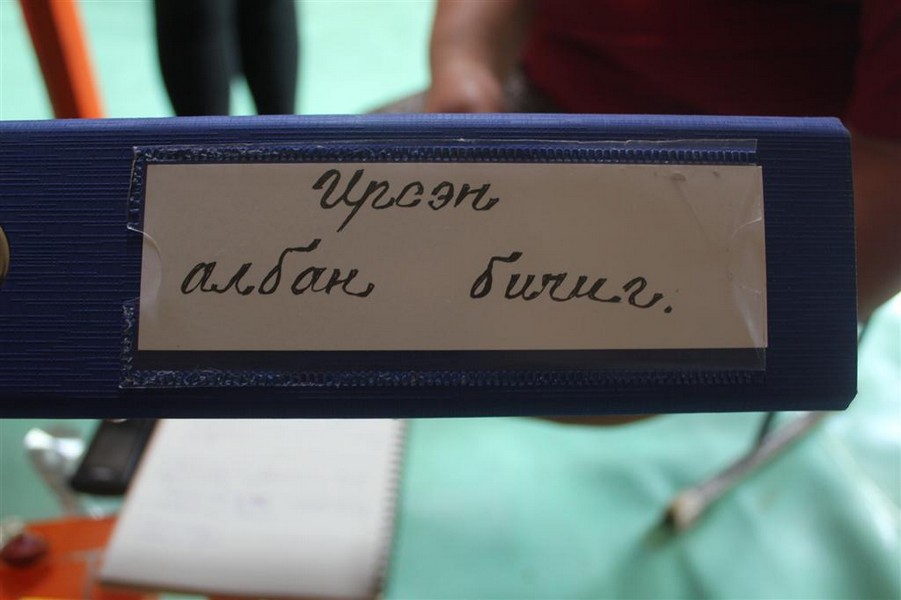 Ирсэн
албан бичиг.